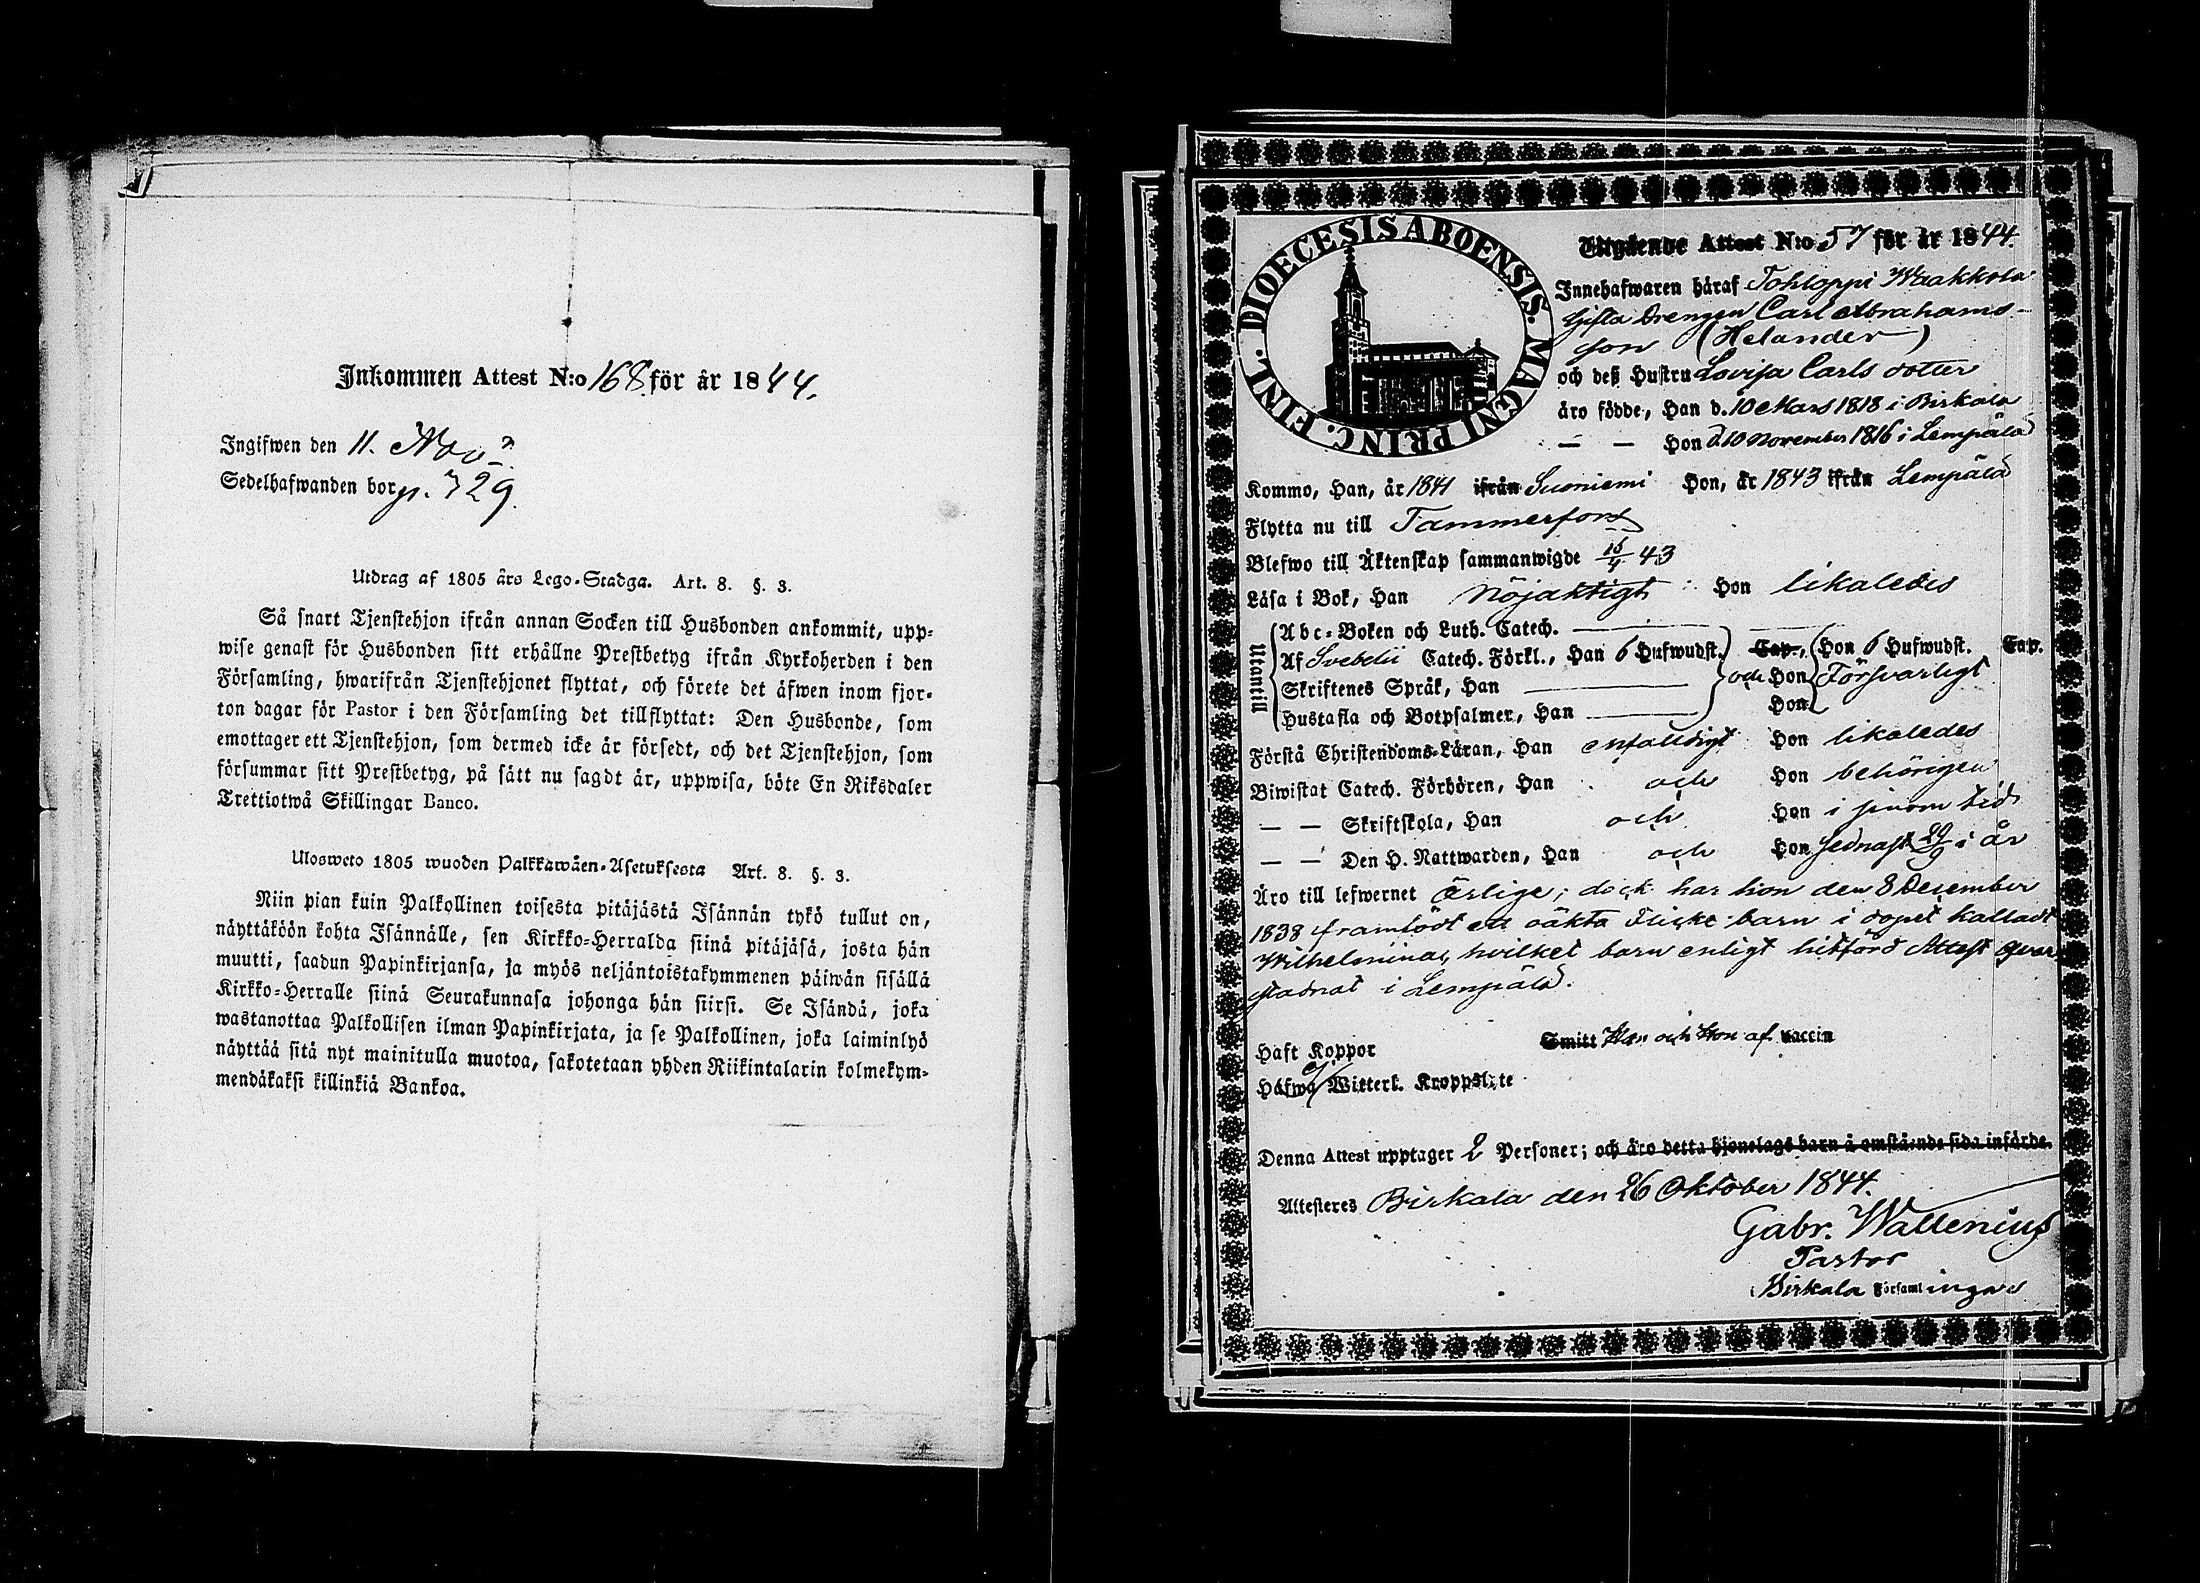 Inkommen Attest N:o 168 för år 1844.
Ingifwen den 11. Nov.
Sedelhafwanden bor p. 729.
Utdrag af 1805 års Lego-Stadga. Art. 8. §. 3.
Så snart Tjenstehjon ifrån annan Socken till Husbonden ankommit, upp-
wise genast för Husbonden sitt erhållne Prestbetyg ifrån Kyrkoherden i den
Församling, hwarifrån Tjenstehjonet flyttat, och förete det äfwen inom fjor-
ton dagar för Pastor i den Församling det tillflyttat: Den Husbonde, som
emottager ett Tjenstehjon, som dermed icke är försedt, och det Tjenstehjon, som
försummar sitt Prestbetyg, på sätt nu sagdt är, uppwisa, böte En Riksdaler
Trettiotwå Skillingar Banco.
Ulosweto 1805 wuoden Palkkawäen-Asetuksesta Art. 8. §. 3.
Niin pian kuin Palkollinen toisesta pitäjästä Isännän tykö tullut on,
näyttäköön kohta Isännälle, sen Kirkko-Herralda siinä pitäjäsä, josta hän
muutti, saadun Papinkirjansa, ja myös neljäntoistakymmenen päiwän sisällä
Kirkko-Herralle siinä Seurakunnasa johonga hän siirsi. Se Isändä, joka
wastanottaa Palkollisen ilman Papinkirjata, ja se Palkollinen, joka laiminlyö
näyttää sitä nyt mainitulla muotoa, sakotetaan yhden Riikintalarin kolmekym-
mendäkaksi killinkiä Bankoa.
DIOECESIS ABOENSIS. MAGNI PRINC. FINL.
Utgående Attest N:o 57 för år 1844.
Innehafwaren häraf Tohloppi Waakkola
Gifta Drengen Carl Abrahams-
son (Helander)
och deß Hustru Lovisa Carls dotter
äro födde, Han d. 10 Mars 1818 i Birkala
— — Hon d 10 November 1816 i Lempälä
Kommo, Han, år 1841 ifrån Suoniemi Hon, år 1843 ifrån Lempälä
Flytta nu till Tammerfors
Blefwo till Äktenskap sammanwigde 15/4 43
Läsa i Bok, Han Nöjaktigt Hon likaledes
Utantill
Abc-Boken och Luth. Catech.
Af Svebelii Catech. Förkl., Han 6 Hufwudst. Cap., Hon 6 Hufwudst. Cap.
Skriftenes Språk, Han och Hon Försvarligt
Hustafla och Botpsalmer, Han Hon
Förstå Christendoms-Läran, Han enfaldigt Hon likaledes
Biwistat Catech. Förhören, Han och Hon behörigen
— — Skriftskola, Han och Hon i sinom tid
— — Den H. Nattwarden, Han och Hon sednast 29/9 i år
Äro till lefwernet ärlige; dock har hon den 8 December
1838 framfödt ett oäkta Flicke barn i dopet kalladt
Wilhelmina, hvilket barn enligt hitförd Attest qvar
stadnat i Lempälä.
Haft Koppor Smitt Han och Hon af vaccin
Häfwa ej Witterl. Kroppslyte
Denna Attest upptager 2 Personer; och äro detta hjonelags barn å omstående sida införde.
Attesteres Birkala den 26 Oktober 1844.
Gabr. Wallenius
Pastor
i Birkala Församlingar